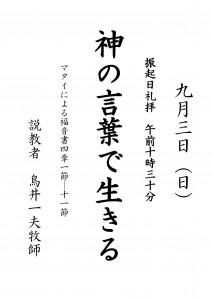 九月三日（日）
振起日礼拝　午前十時三十分
神の言葉で生きる
マタイによる福音書四章一節―十一節
説教者　鳥井一夫牧師